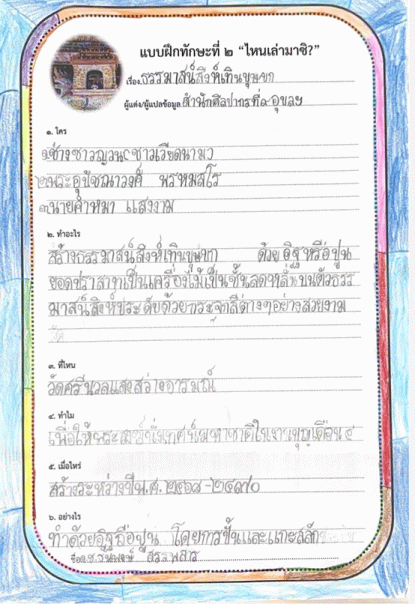 แบบฝึกทักษะที่ ๒ “ไหนเล่ามาซิ?”
เรื่อง ธรรมาสน์สิงห์เทินบุษบก
ผู้แต่ง/ผู้แปลข้อมูล สำนักศิลปากรที่๙ อุบลฯ
๑. ใคร
๑ช่างชาวญวน(ชาวเวียดนาม)
๒พระอุปัชฌาวงศ์ พรหมสโร
๓นายคำหมา แสงงาม
๒. ทำอะไร
สร้างธรรมาสน์สิงห์เทินบุษบก ด้วยอิฐหรือปูน
ยอดปราสาทเป็นเครื่องไม้เป็นชั้นลดหลั่นบนตัวธรร
มาสน์สิงห์ประดับด้วยกระจกสีต่างๆอย่างสวยงาม
๓. ที่ไหน
วัดศรีนวลแสงสว่างอารมณ์
๔. ทำไม
เพื่อให้พระสงฆ์นั่งเทศน์มหาชาติในงานบุญเดือน ๔
๕. เมื่อไหร่
สร้างระหว่างปีพ.ศ. ๒๔๖๘-๒๔๗๐
๖. อย่างไร
ทำด้วยอิฐถือปูน โดยการปั้นและแกะสลัก